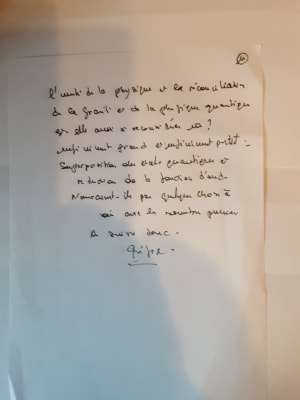 l'unité de la physique et la réconciliation
de la gravité et de la physique quantique
est elle aussi à reconsidérer via ?
infiniment grand et infiniment petit :
Superposition des états quantiques et
réduction de la fonction d'onde
n'auraient-ils pas quelque chose à
voir avec les nombres premiers
A suivre donc.